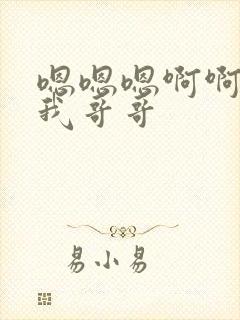 嗯嗯嗯啊啊
我哥哥
易小易